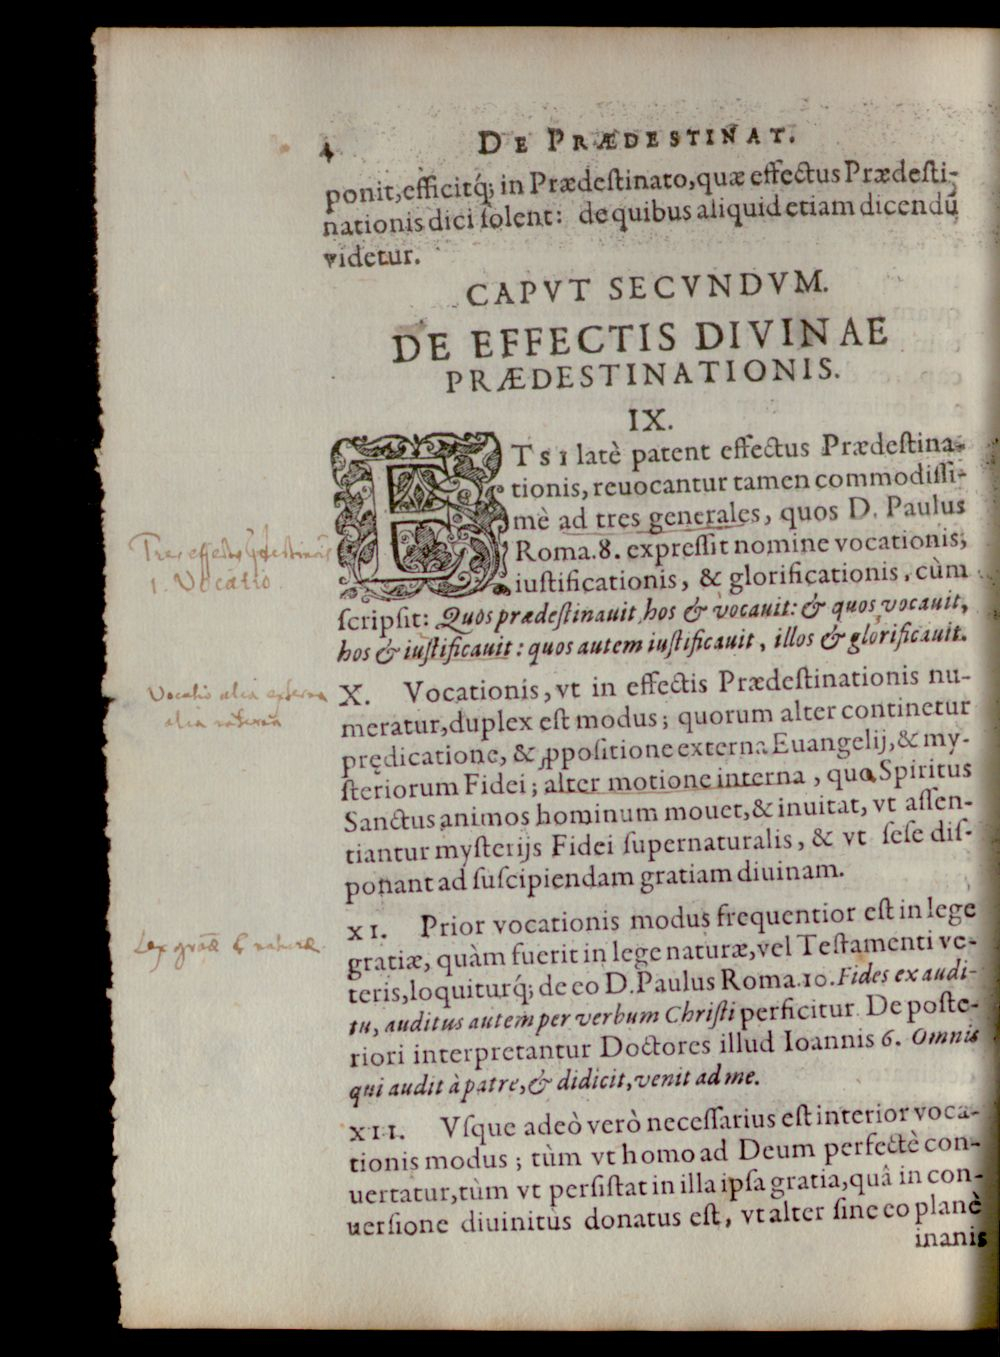 4 DE PRÆDESTINAT.
ponit, efficitq́; in Prædeſtinato, quæ effectus Prædeſti-
nationis dici ſolent: de quibus aliquid etiam dicendū
videtur.
CAPVT SECVNDVM.
DE EFFECTIS DIVINAE
PRÆDESTINATIONIS.
IX.
ETSI latè patent effectus Prædeſtina-
tionis, reuocantur tamen commodiſſi-
mè ad tres generales, quos D. Paulus
Roma. 8. expreſſit nomine vocationis,
iuſtificationis, & glorificationis, cùm
ſcripſit: Quos prædeſtinauit, hos & vocauit: & quos vocauit,
hos & iuſtificauit: quos autem iuſtificauit, illos & glorificauit.
1. Vocatio
Vocatio alia externa
alia interna
X. Vocationis, vt in effectis Prædeſtinationis nu-
meratur, duplex eſt modus; quorum alter continetur
prędicatione, & ꝓpoſitione externa Euangelij, & my-
ſteriorum Fidei; alter motione interna, qua Spiritus
Sanctus animos hominum mouet, & inuitat, vt aſſen-
tiantur myſterijs Fidei ſupernaturalis, & vt ſeſe diſ-
ponant ad ſuſcipiendam gratiam diuinam.
XI. Prior vocationis modus frequentior eſt in lege
gratiæ, quàm fuerit in lege naturæ, vel Teſtamenti ve-
teris, loquiturq́; de eo D. Paulus Roma. 10. Fides ex audi-
tu, auditus autem per verbum Chriſti perficitur. De poſte-
riori interpretantur Doctores illud Ioannis 6. Omnis
qui audit à patre, & didicit, venit ad me.
XII. Vſque adeò verò neceſſarius eſt interior voca-
tionis modus; tùm vt homo ad Deum perfectè con-
uertatur, tùm vt perſiſtat in illa ipſa gratia, quâ in con-
uerſione diuinitùs donatus eſt, vt alter ſine eo planè
inanis